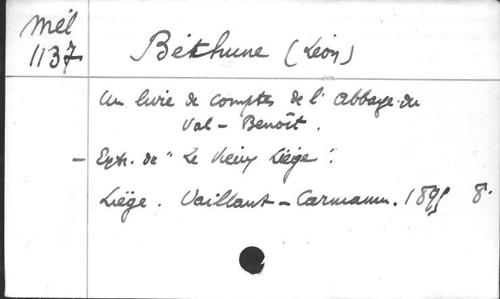 Mél
1137
Béthune (Léon)
Un livre de comptes de l'abbaye du
Val-Benoît.
- Extr. de "Le Vieux Liège".
Liège. Vaillant-Carmanne. 1895 8°